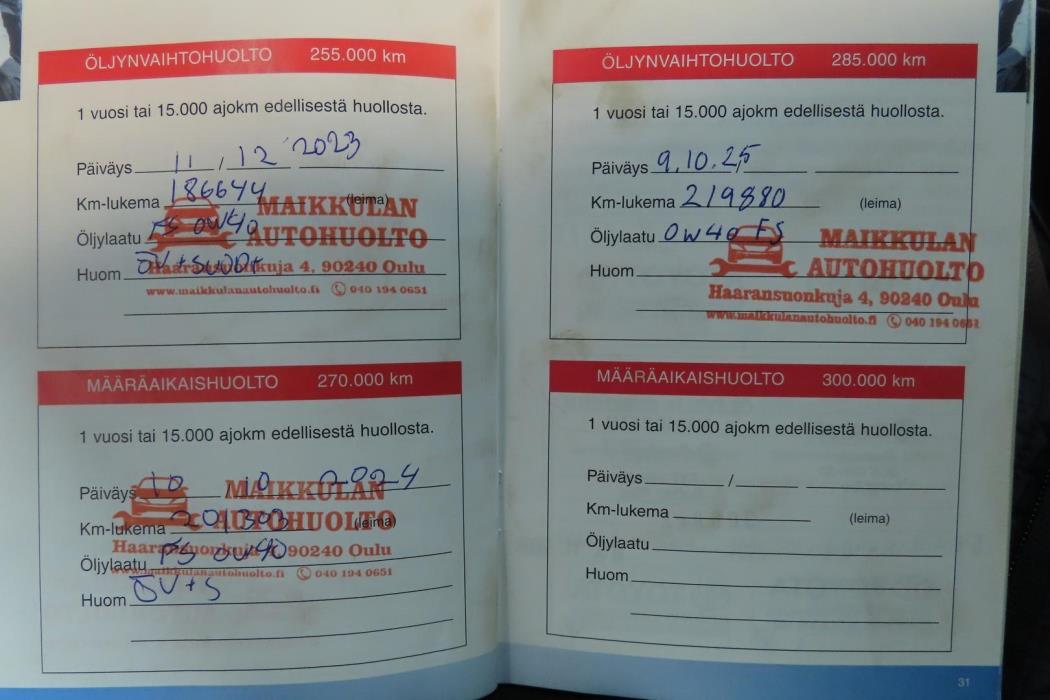 ÖLJYNVAIHTOHUOLTO 255.000 km
1 vuosi tai 15.000 ajokm edellisestä huollosta.
Päiväys 11 / 12 2023
Km-lukema 186644 (leima)
Öljylaatu FS 0W40
Huom ÖV+suod.
MAIKKULAN
AUTOHUOLTO
Haaransuonkuja 4, 90240 Oulu
www.maikkulanautohuolto.fi 040 194 0651
MÄÄRÄAIKAISHUOLTO 270.000 km
1 vuosi tai 15.000 ajokm edellisestä huollosta.
Päiväys 10 / 10 2024
Km-lukema 201303 (leima)
Öljylaatu FS 0W40
Huom ÖV+S
MAIKKULAN
AUTOHUOLTO
Haaransuonkuja 4, 90240 Oulu
www.maikkulanautohuolto.fi 040 194 0651
ÖLJYNVAIHTOHUOLTO 285.000 km
1 vuosi tai 15.000 ajokm edellisestä huollosta.
Päiväys 9.10.25 /
Km-lukema 219880 (leima)
Öljylaatu 0W40 FS
Huom
MAIKKULAN
AUTOHUOLTO
Haaransuonkuja 4, 90240 Oulu
www.maikkulanautohuolto.fi 040 194 0651
MÄÄRÄAIKAISHUOLTO 300.000 km
1 vuosi tai 15.000 ajokm edellisestä huollosta.
Päiväys /
Km-lukema (leima)
Öljylaatu
Huom
31